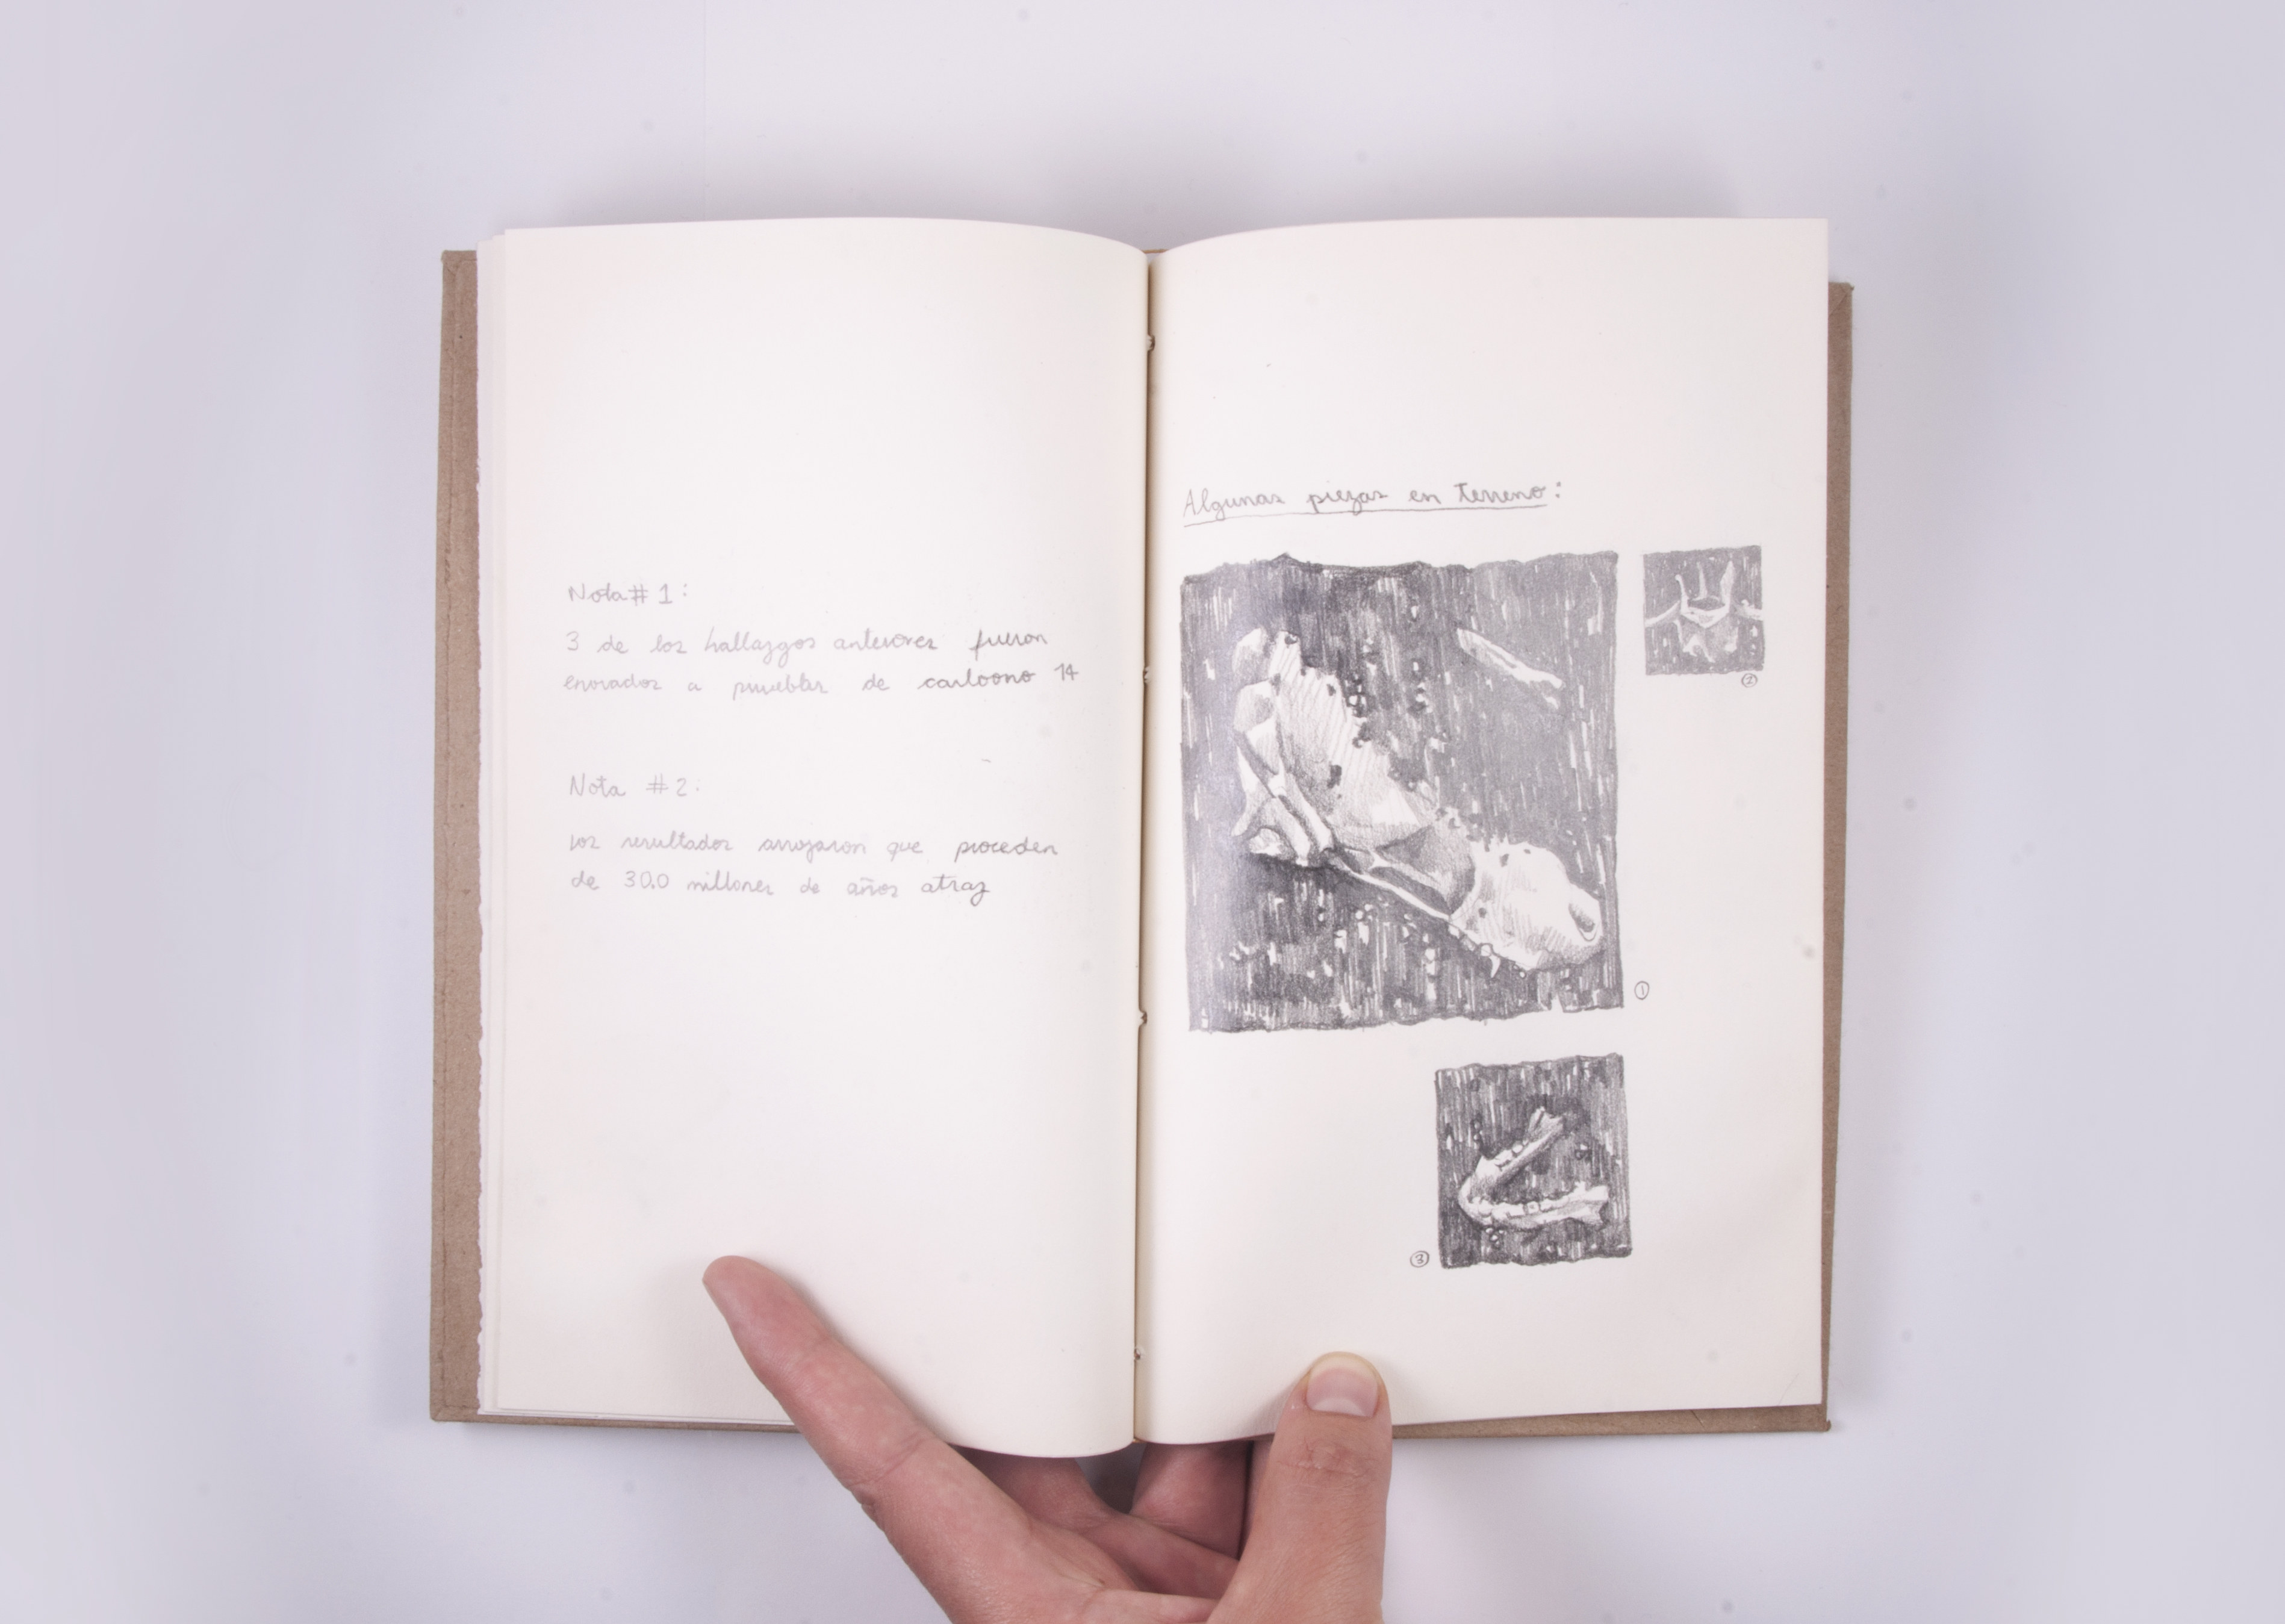 Nota # 1:
3 de los hallazgos anteriores fueron
enviados a pruebas de carbono 14
Nota #2:
los resultados arrojaron que proceden
de 30.0 millones de años atraz
Algunas piezas en terreno:
2
1
3